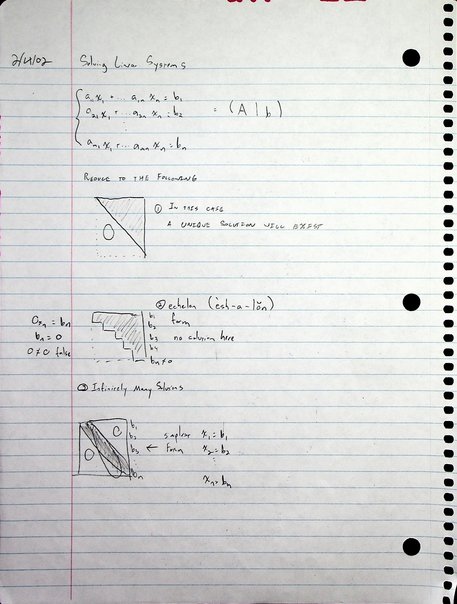 2/4/02 Solving Linear Systems
a₁x₁ + ... a₁ₙ xₙ = b₁
a₂₁x₁ + ... a₂ₙ xₙ = b₂ = (A | b)
aₙ₁x₁ + ... aₙₙ xₙ = bₙ
REDUCE TO THE FOLLOWING
① IN THIS CASE
A UNIQUE SOLUTION WILL EXIST
O
② echelon (ĕsh-a-lŏn)
form
no solution here
0xₙ = bₙ
bₙ = 0
0 ≠ 0 false
b₁
b₂
b₃
b₄
bₙ ≠ 0
③ Infinitely Many Solutions
O
O
b₁
b₂
b₃
bₙ
← form x₁ = b₁
x₂ = b₂
xₙ = bₙ